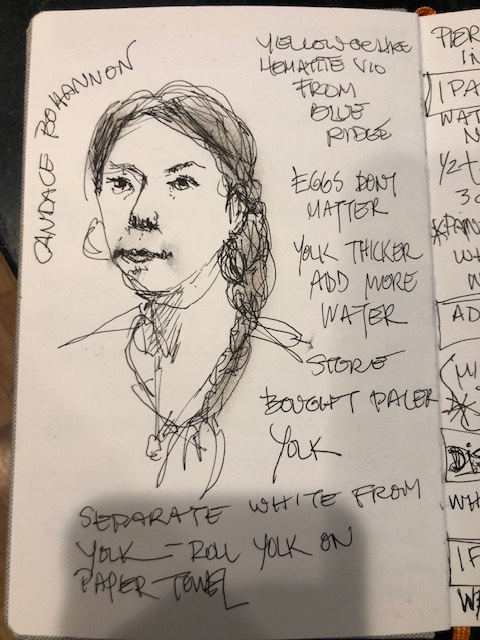 CANDACE BOHANNON
YELLOW OCHRE
HEMATITE VIO
FROM
BLUE
RIDGE
EGGS DONT
MATTER
YOLK THICKER
ADD MORE
WATER
STORE
BOUGHT PALER
YOLK
SEPARATE WHITE FROM
YOLK - ROLL YOLK ON
PAPER TOWEL
PIER
IN
1 PA
WAT
N
Y2t
3
*PAN
WH
N
AD
(WI
DIS
WH
IF
WA